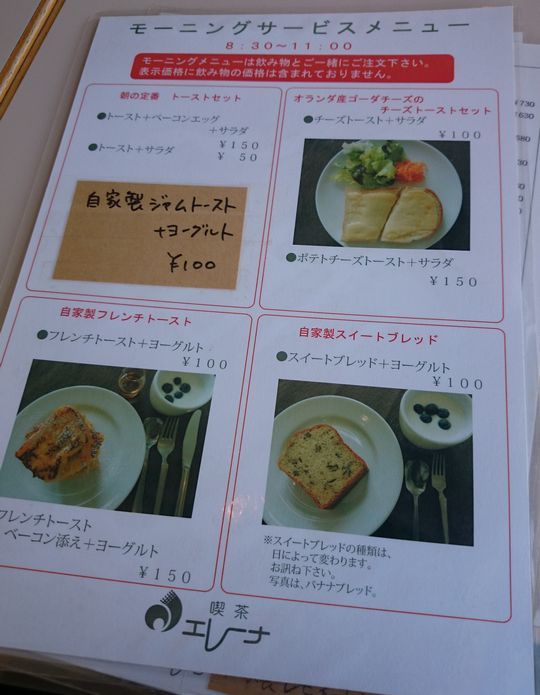 モーニングサービスメニュー
8:30~11:00
モーニングメニューは飲み物とご一緒にご注文下さい。
表示価格に飲み物の価格は含まれておりません。
朝の定番 トーストセット
●トースト+ベーコンエッグ
+サラダ
¥150
●トースト+サラダ
¥ 50
自家製ジャムトースト
+ヨーグルト
¥100
オランダ産ゴーダチーズの
チーズトーストセット
●チーズトースト+サラダ
¥100
●ポテトチーズトースト+サラダ
¥150
自家製フレンチトースト
●フレンチトースト+ヨーグルト
¥100
フレンチトースト
ベーコン添え+ヨーグルト
¥150
自家製スイートブレッド
●スイートブレッド+ヨーグルト
¥100
※スイートブレッドの種類は、
日によって変わります。
お訊ね下さい。
写真は、バナナブレッド。
喫茶
エレーナ
¥730
¥630